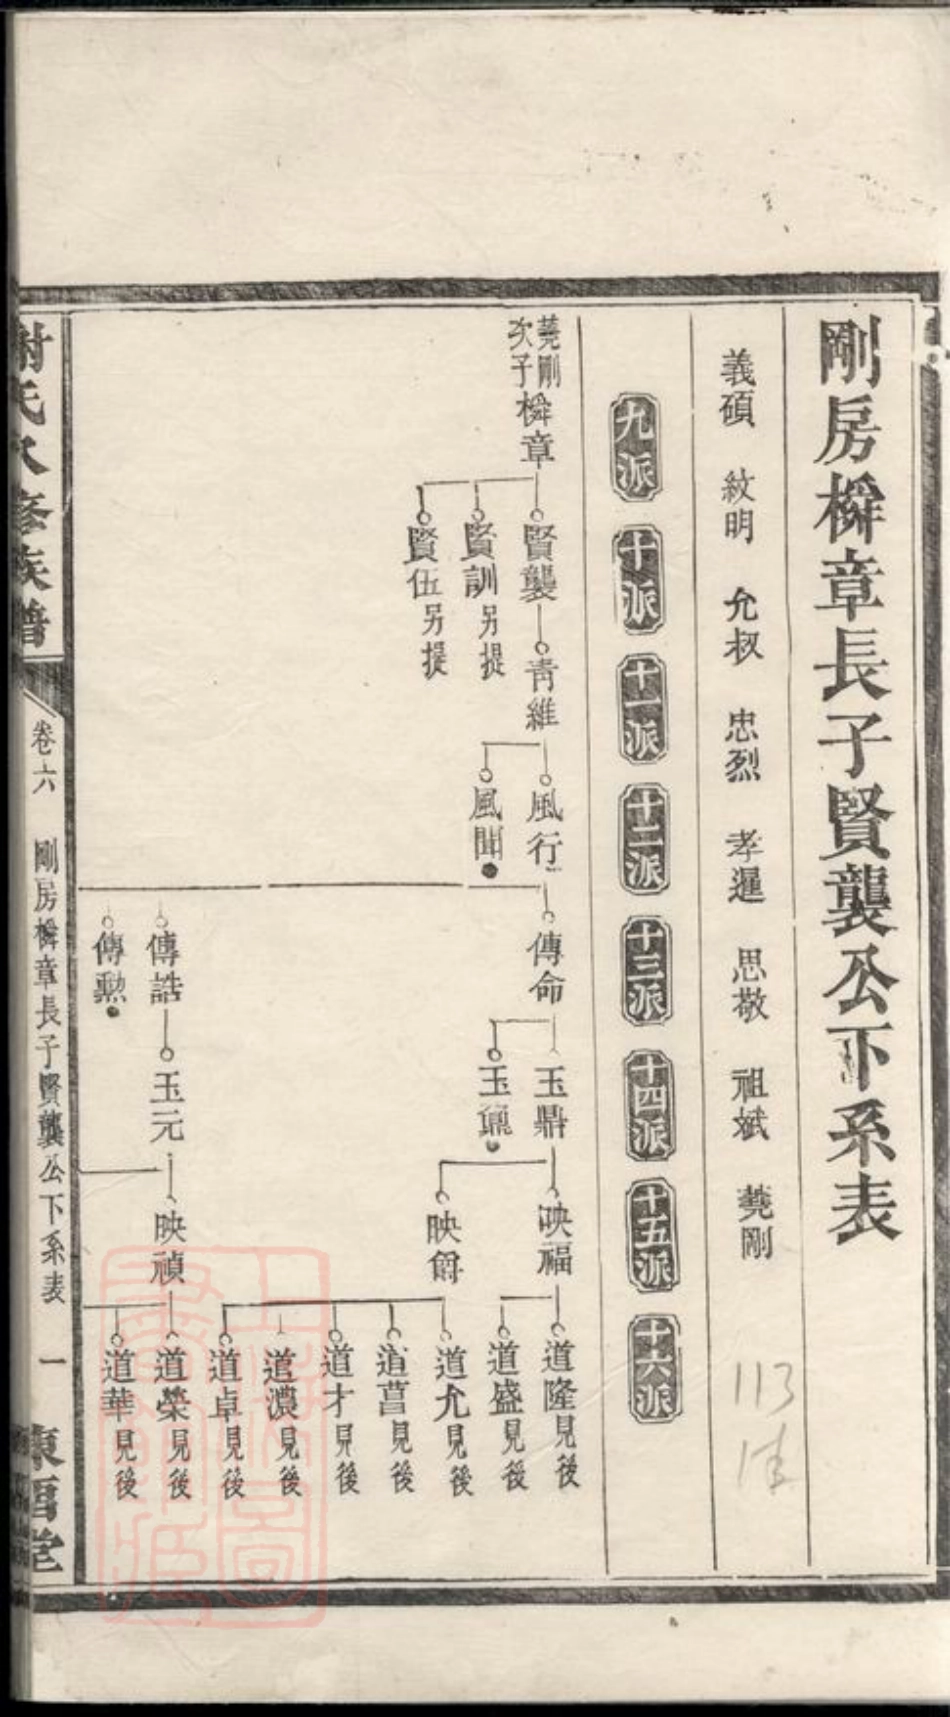 剛房橓章長子賢襲公下系表
義碩 紋明 允叔 忠烈 孝暹 思敬 祖斌 蕘剛
113
九派 十派 十一派 十二派 十三派 十四派 十五派 十六派
蕘剛次子 橓章
賢襲
賢訓 另提
賢伍 另提
青維
風行
風聞
傳命
傳誥
傳勲
玉鼎
玉鼐
玉元
映福
映爵
映禎
道隆 見後
道盛 見後
道允 見後
道菖 見後
道才 見後
道濃 見後
道卓 見後
道榮 見後
道華 見後
謝氏 修族譜
卷六 剛房橓章長子賢襲公下系表 一